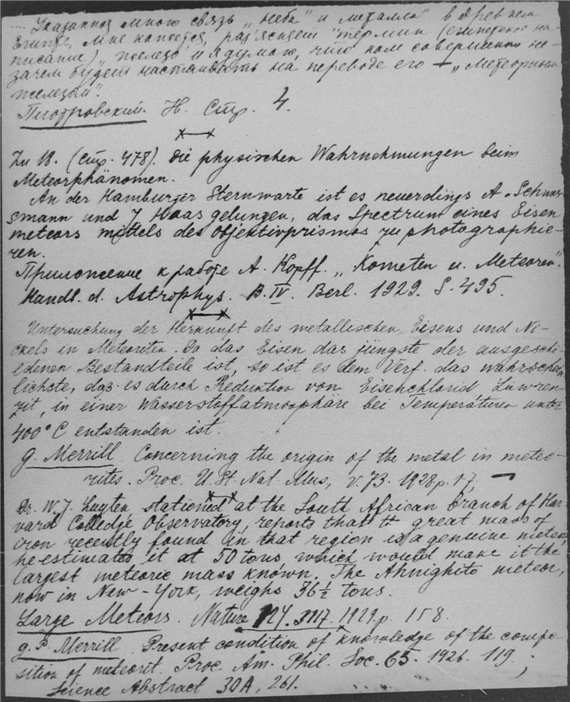 Указанная мною связь „неба" и металла" в древнем
Египте, мне кажется, раз'ясняет термин (египетское на-
писание) „железо" и я думаю, что нам совершенно не-
зачем будет настаивать на переводе его „метеорным
железом".
Пиотровский. Н. Стр. 4.
Zu 18. (стр. 478). die physischen Wahrnehmungen beim
Meteorphänomen.
An der Hamburger Sternwarte ist es neuerdings A. Schwas-
smann und J Haas gelungen, das Spectrum eines Eisen
meteors mittels des Objektivprismas zu photographie-
ren.
Приложение к работе A. Kopff. „Kometen u. Meteoren".
Handl. d. Astrophys. B. IV. Berl. 1929. S. 495.
Untersuchung der Herkunft des metallischen Eisens und Ni-
ckels in Meteoriten. Da das Eisen das jüngste der ausgeschi-
edenen Bestandteile ist, so ist es dem Verf. das wahrschein
lichste, das es durch Reduktion von Eisenchlorid Lawren
zit, in einer Wasserstoffatmosphäre bei Temperaturen unter
400° C entstanden ist.
G. Merrill. Concerning the origin of the metal in meteo-
rits. Proc. U. St. Nat. Mus, v. 73. 1928 p. 17. —
Dr. W. J. Luyten stationed at the South African Branch of Har-
vard Colledge Observatory, reports that the great mass of
iron recently found in that region is a genuine meteor,
he estimates it at 50 tons which would make it the
largest meteoric mass known. The Ahnighito meteor,
now in New-York, weighs 36½ tons.
Large Meteors. Nature 124. 3117. 1929. p. 158.
G. P. Merrill. Present condition of knowledge of the compo-
sition of meteorit. Proc. Am. Phil. Soc. 65. 1926. 119,
Science Abstract 30A, 261.